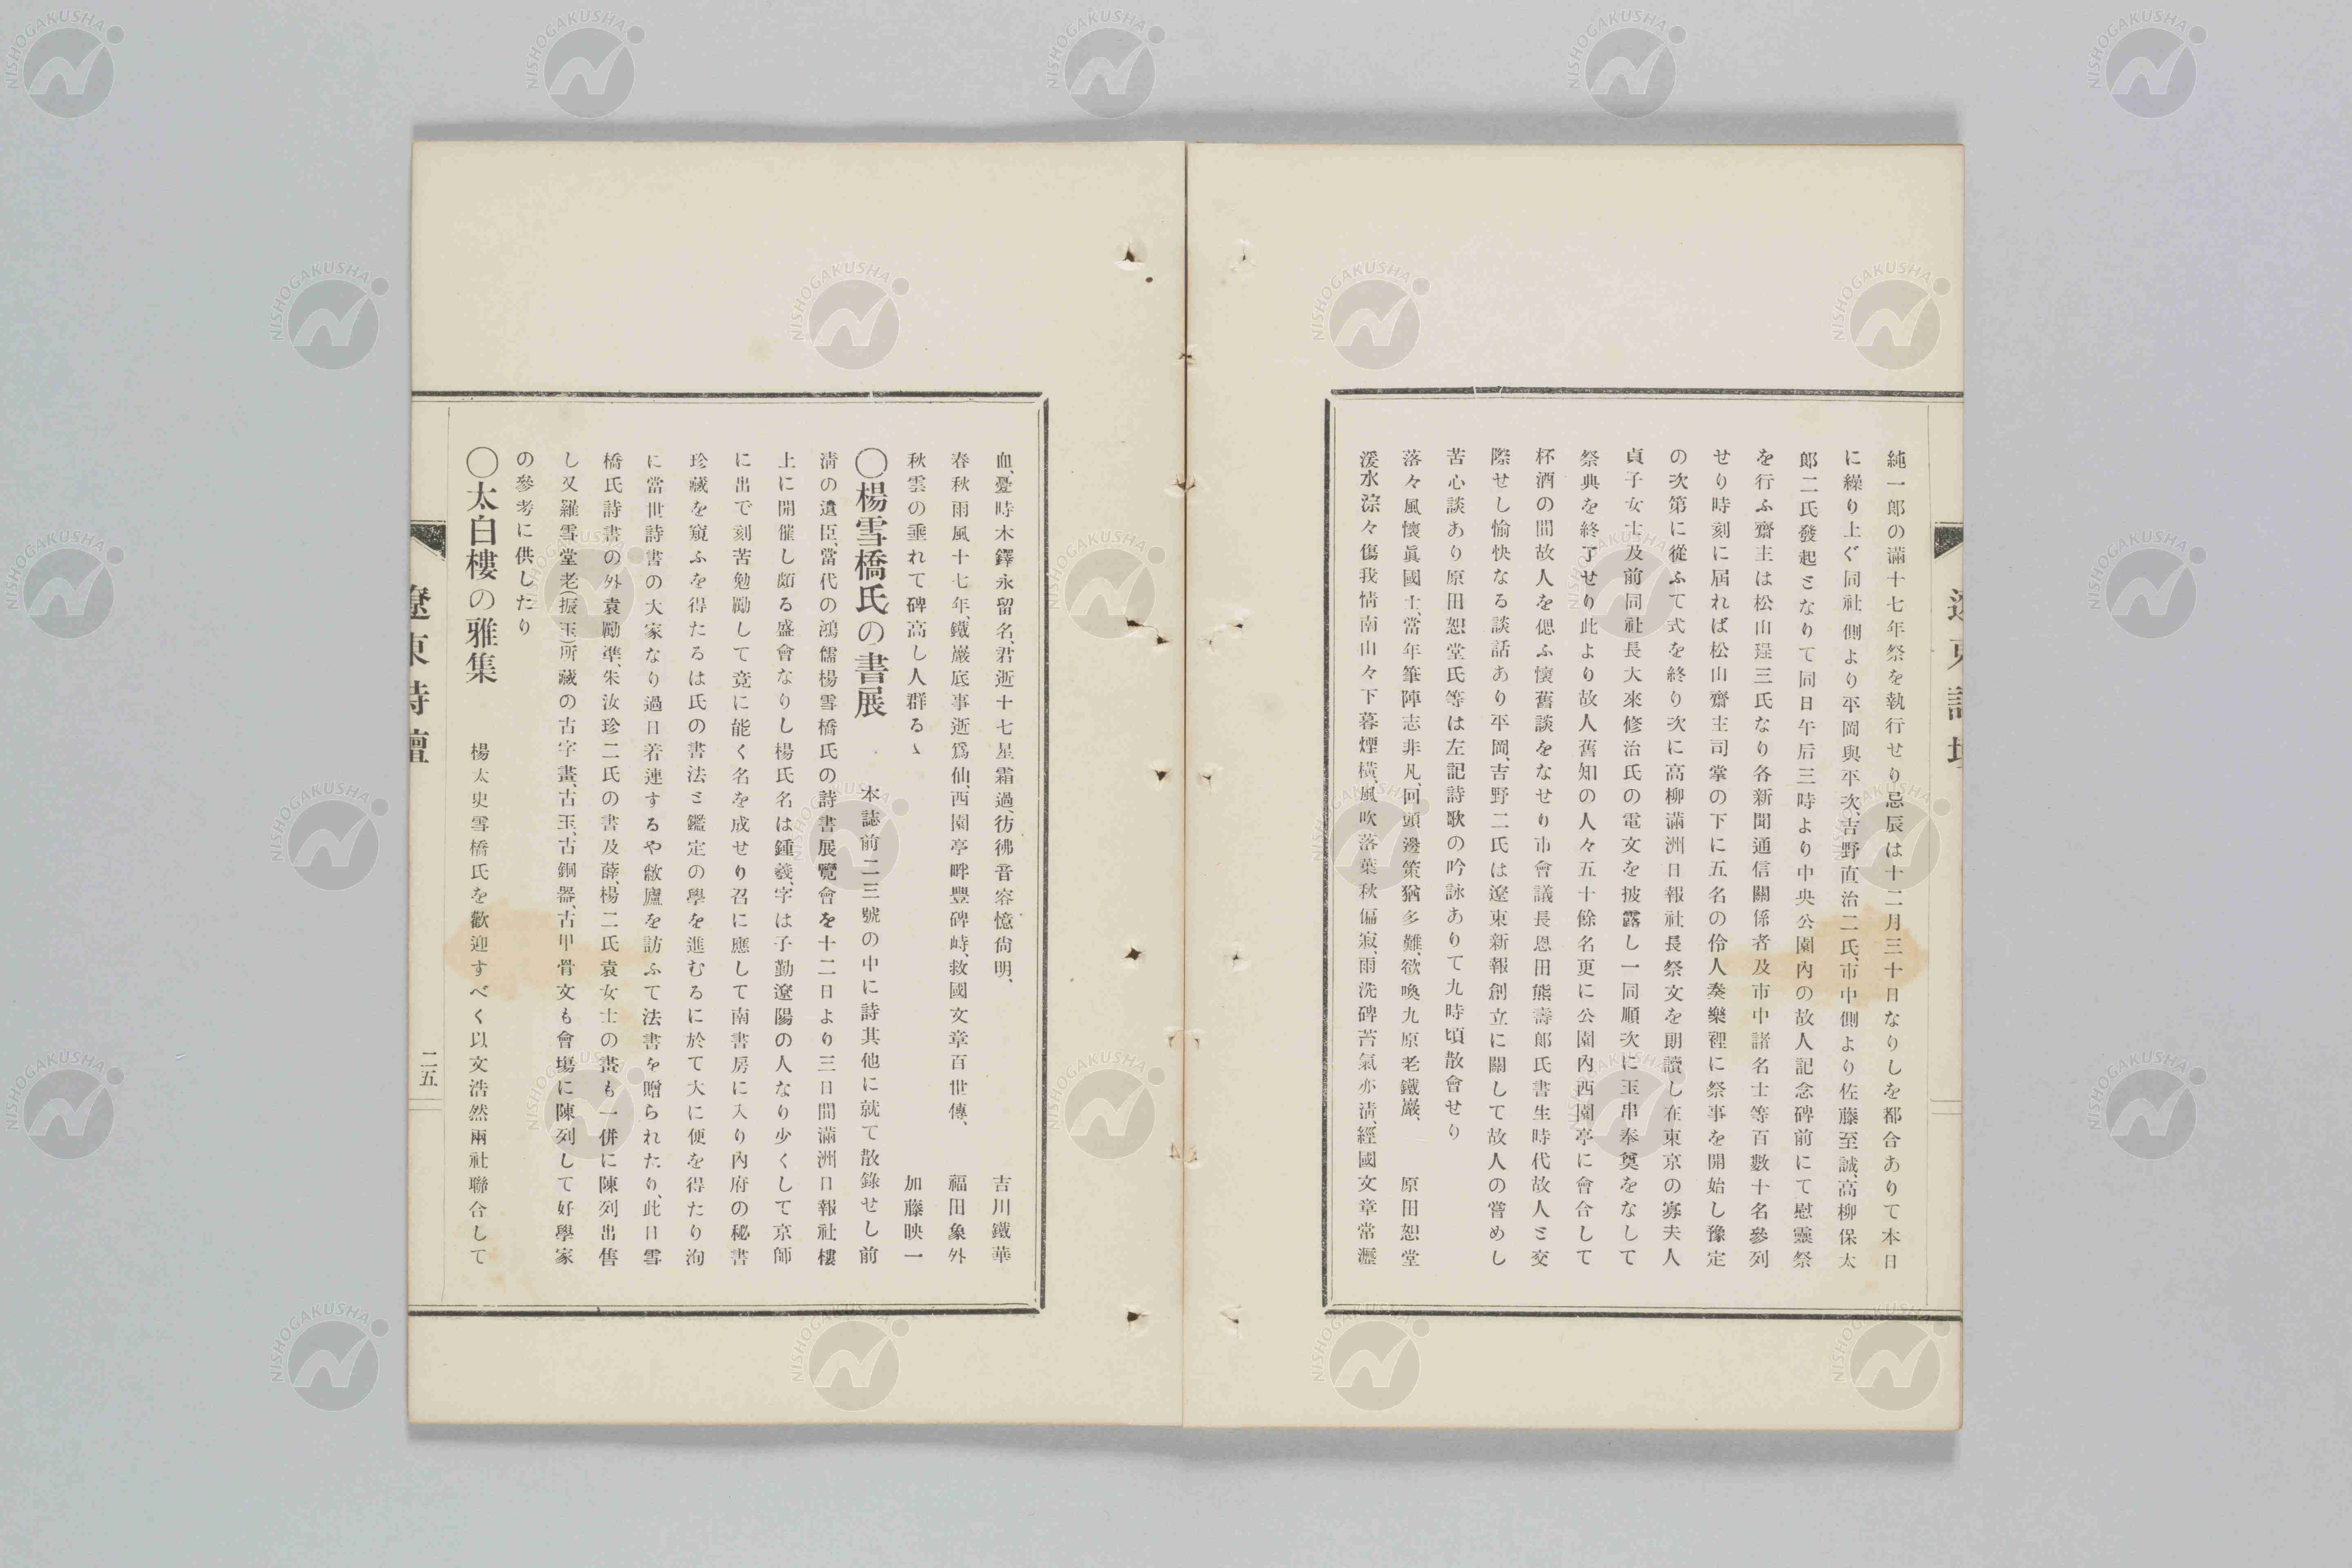 純一郎の滿十七年祭を執行せり忌辰は十二月三十日なりしを都合ありて本日
に繰り上ぐ同社側より平岡與平次、吉野直治二氏、市中側より佐藤至誠、高柳保太
郎二氏發起となりて同日午后三時より中央公園內の故人記念碑前にて慰靈祭
を行ふ齋主は松山珵三氏なり各新聞通信關係者及市中諸名士等百數十名參列
せり時刻に屆れば松山齋主司掌の下に五名の伶人奏樂裡に祭事を開始し豫定
の次第に從ふて式を終り次に高柳滿洲日報社長祭文を朗讀し在東京の寡夫人
貞子女士及前同社長大來修治氏の電文を披露し一同順次に玉串奉奠をなして
祭典を終了せり此より故人舊知の人々五十餘名更に公園內西園亭に會合して
杯酒の間故人を偲ふ懷舊談をなせり市會議長恩田熊壽郎氏書生時代故人と交
際せし愉快なる談話あり平岡、吉野二氏は遼東新報創立に關して故人の嘗めし
苦心談あり原田恕堂氏等は左記詩歌の吟詠ありて九時頃散會せり
落々風懷眞國士、當年筆陣志非凡、回頭邊策猶多難、欲喚九原老鐵巖、 原田恕堂
湲水淙々傷我情南山々下暮煙橫、風吹落葉秋偏寂、雨洗碑苔氣亦淸、經國文章常瀝
血、憂時木鐸永留名、君逝十七星霜過、彷彿音容憶尙明、 吉川鐵華
春秋雨風十七年、鐵巖底事逝爲仙、西園亭畔豐碑峙、救國文章百世傳、 福田象外
秋雲の垂れて碑高し人群るゝ 加藤映一
〇楊雪橋氏の書展 本誌前二三號の中に詩其他に就て散錄せし前
淸の遺臣、當代の鴻儒楊雪橋氏の詩書展覽會を十二日より三日間滿洲日報社樓
上に開催し頗る盛會なりし楊氏名は鍾羲、字は子勤遼陽の人なり少くして京師
に出で刻苦勉勵して竟に能く名を成せり召に應して南書房に入り內府の秘書
珍藏を窺ふを得たるは氏の書法と鑑定の學を進むるに於て大に便を得たり洵
に當世詩書の大家なり過日若連するや敝廬を訪ふて法書を贈られたり、此日雪
橋氏詩書の外袁勵準、朱汝珍二氏の書及薛、楊二氏袁女士の畫も一併に陳列出售
し又羅雪堂老(振玉)所藏の古字畫、古玉、古銅器、古甲骨文も會塲に陳列して好學家
の參考に供したり
〇太白樓の雅集 楊太史雪橋氏を歡迎すべく以文浩然兩社聯合して
遼東詩壇
二五